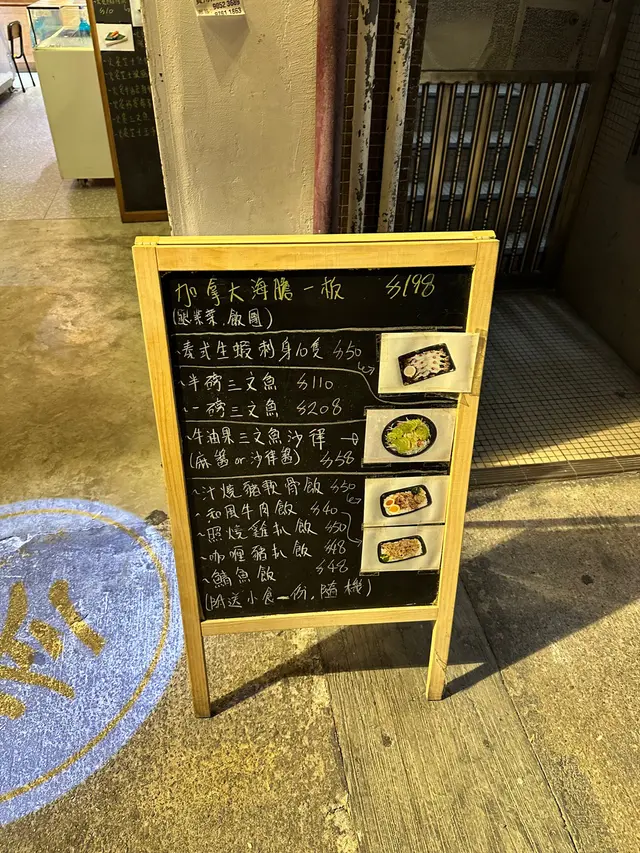 9052 3689
9761 1863
加拿大海膽一板 $198
(跟紫菜,飯團)
泰式生蝦刺身10隻 $50
半磅三文魚 $110
一磅三文魚 $208
牛油果三文魚沙律 →
(麻醬 or 沙律醬) $58
汁燒豬軟骨飯 $50
和風牛肉飯 $40
照燒雞扒飯 $50
咖喱豬扒飯 $48
鰻魚飯 $48
(附送小食一份,隨機)